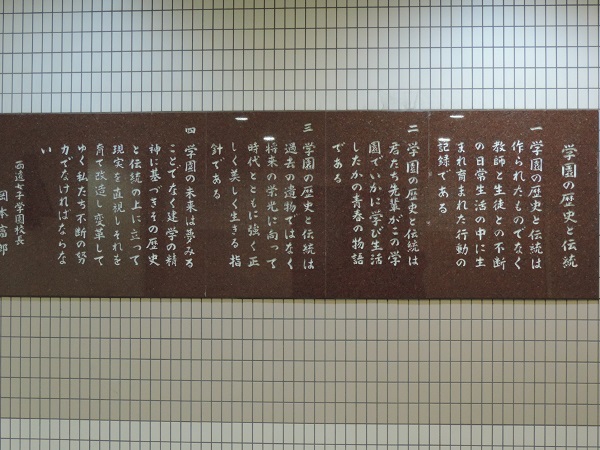 学園の歴史と伝統
一 学園の歴史と伝統は
作られたものでなく
教師と生徒との不断
の日常生活の中に生
まれ育まれた行動の
記録である
二 学園の歴史と伝統は
君たち先輩がこの学
園でいかに学び生活
したかの青春の物語
である
三 学園の歴史と伝統は
過去の遺物ではなく
将来の栄光に向って
時代とともに強く正
しく美しく生きる指
針である
四 学園の未来は夢みる
ことでなく建学の精
神に基づきその歴史
と伝統の上に立って
現実を直視しそれを
育て改造し変革して
ゆく私たち不断の努
力でなければならな
い
西遠女子学園校長
岡本富郎